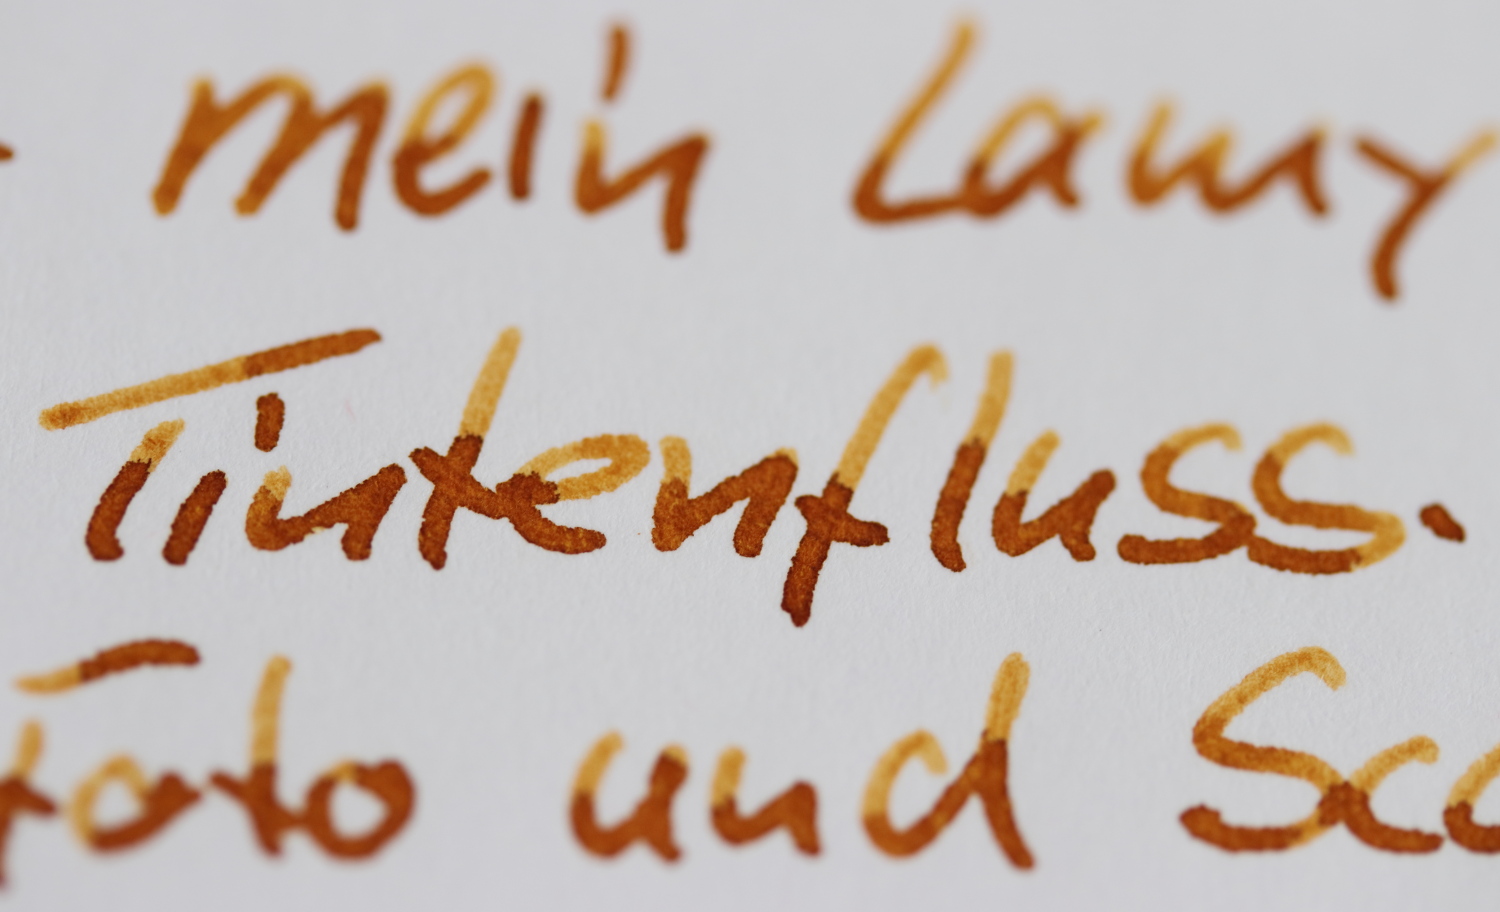 mein Lamy
Tintenfluss.
Foto und